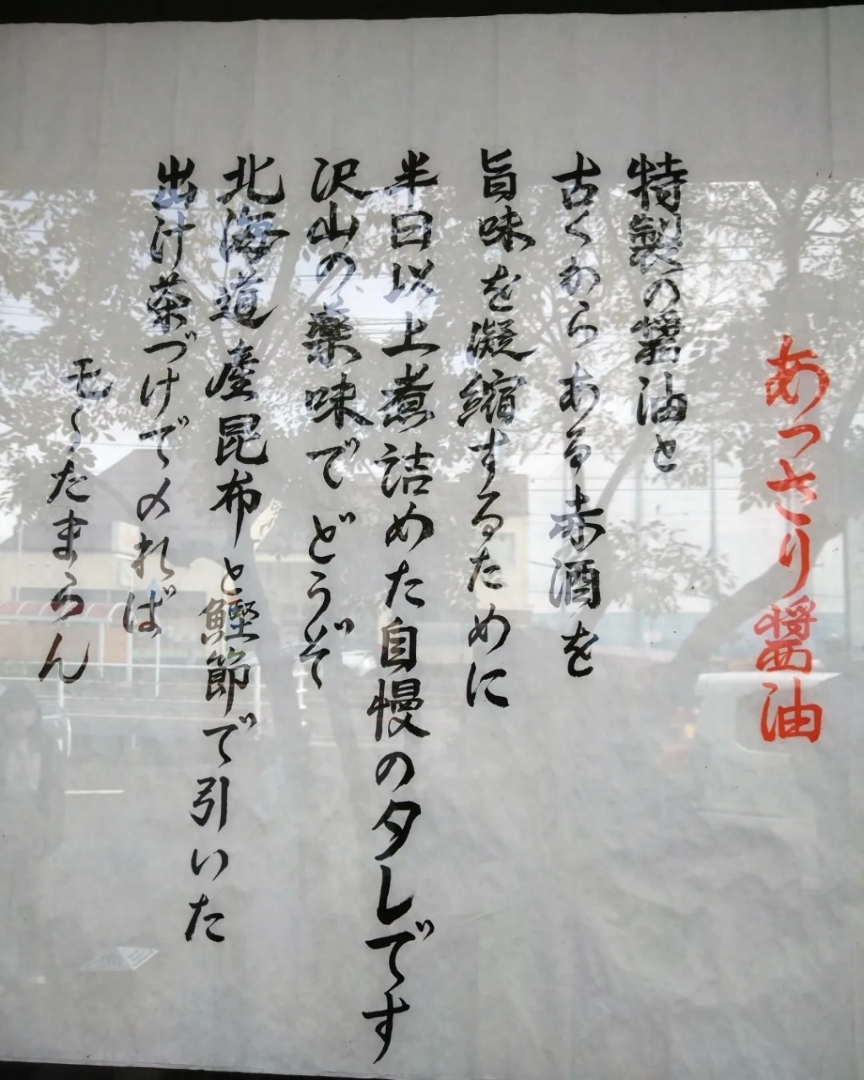 あっさり醤油
特製の醤油と
古くからある赤酒を
旨味を凝縮するために
半日以上煮詰めた自慢のタレです
沢山の薬味でどうぞ
北海道産昆布と鰹節で引いた
出汁茶づけで〆れば
モ〜たまらん